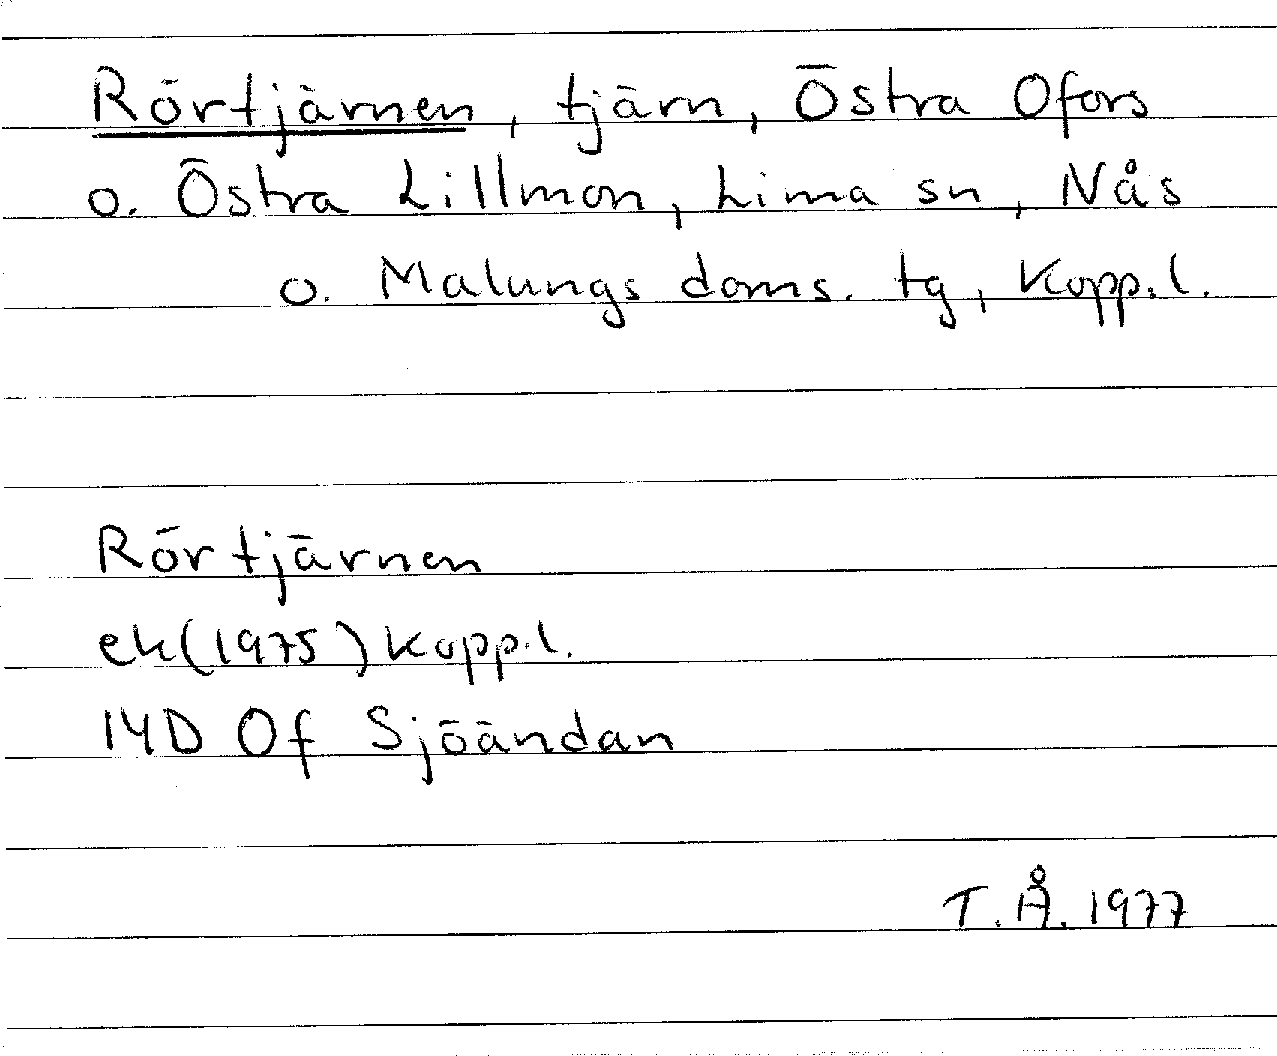 Rörtjärnen, tjärn, Östra Ofors
o. Östra Lillmon, Lima sn, Nås
o. Malungs doms. tg, Kopp.l.
Rörtjärnen
ek(1975) Kopp.l.
14D Of Sjöändan
T.Å. 1977